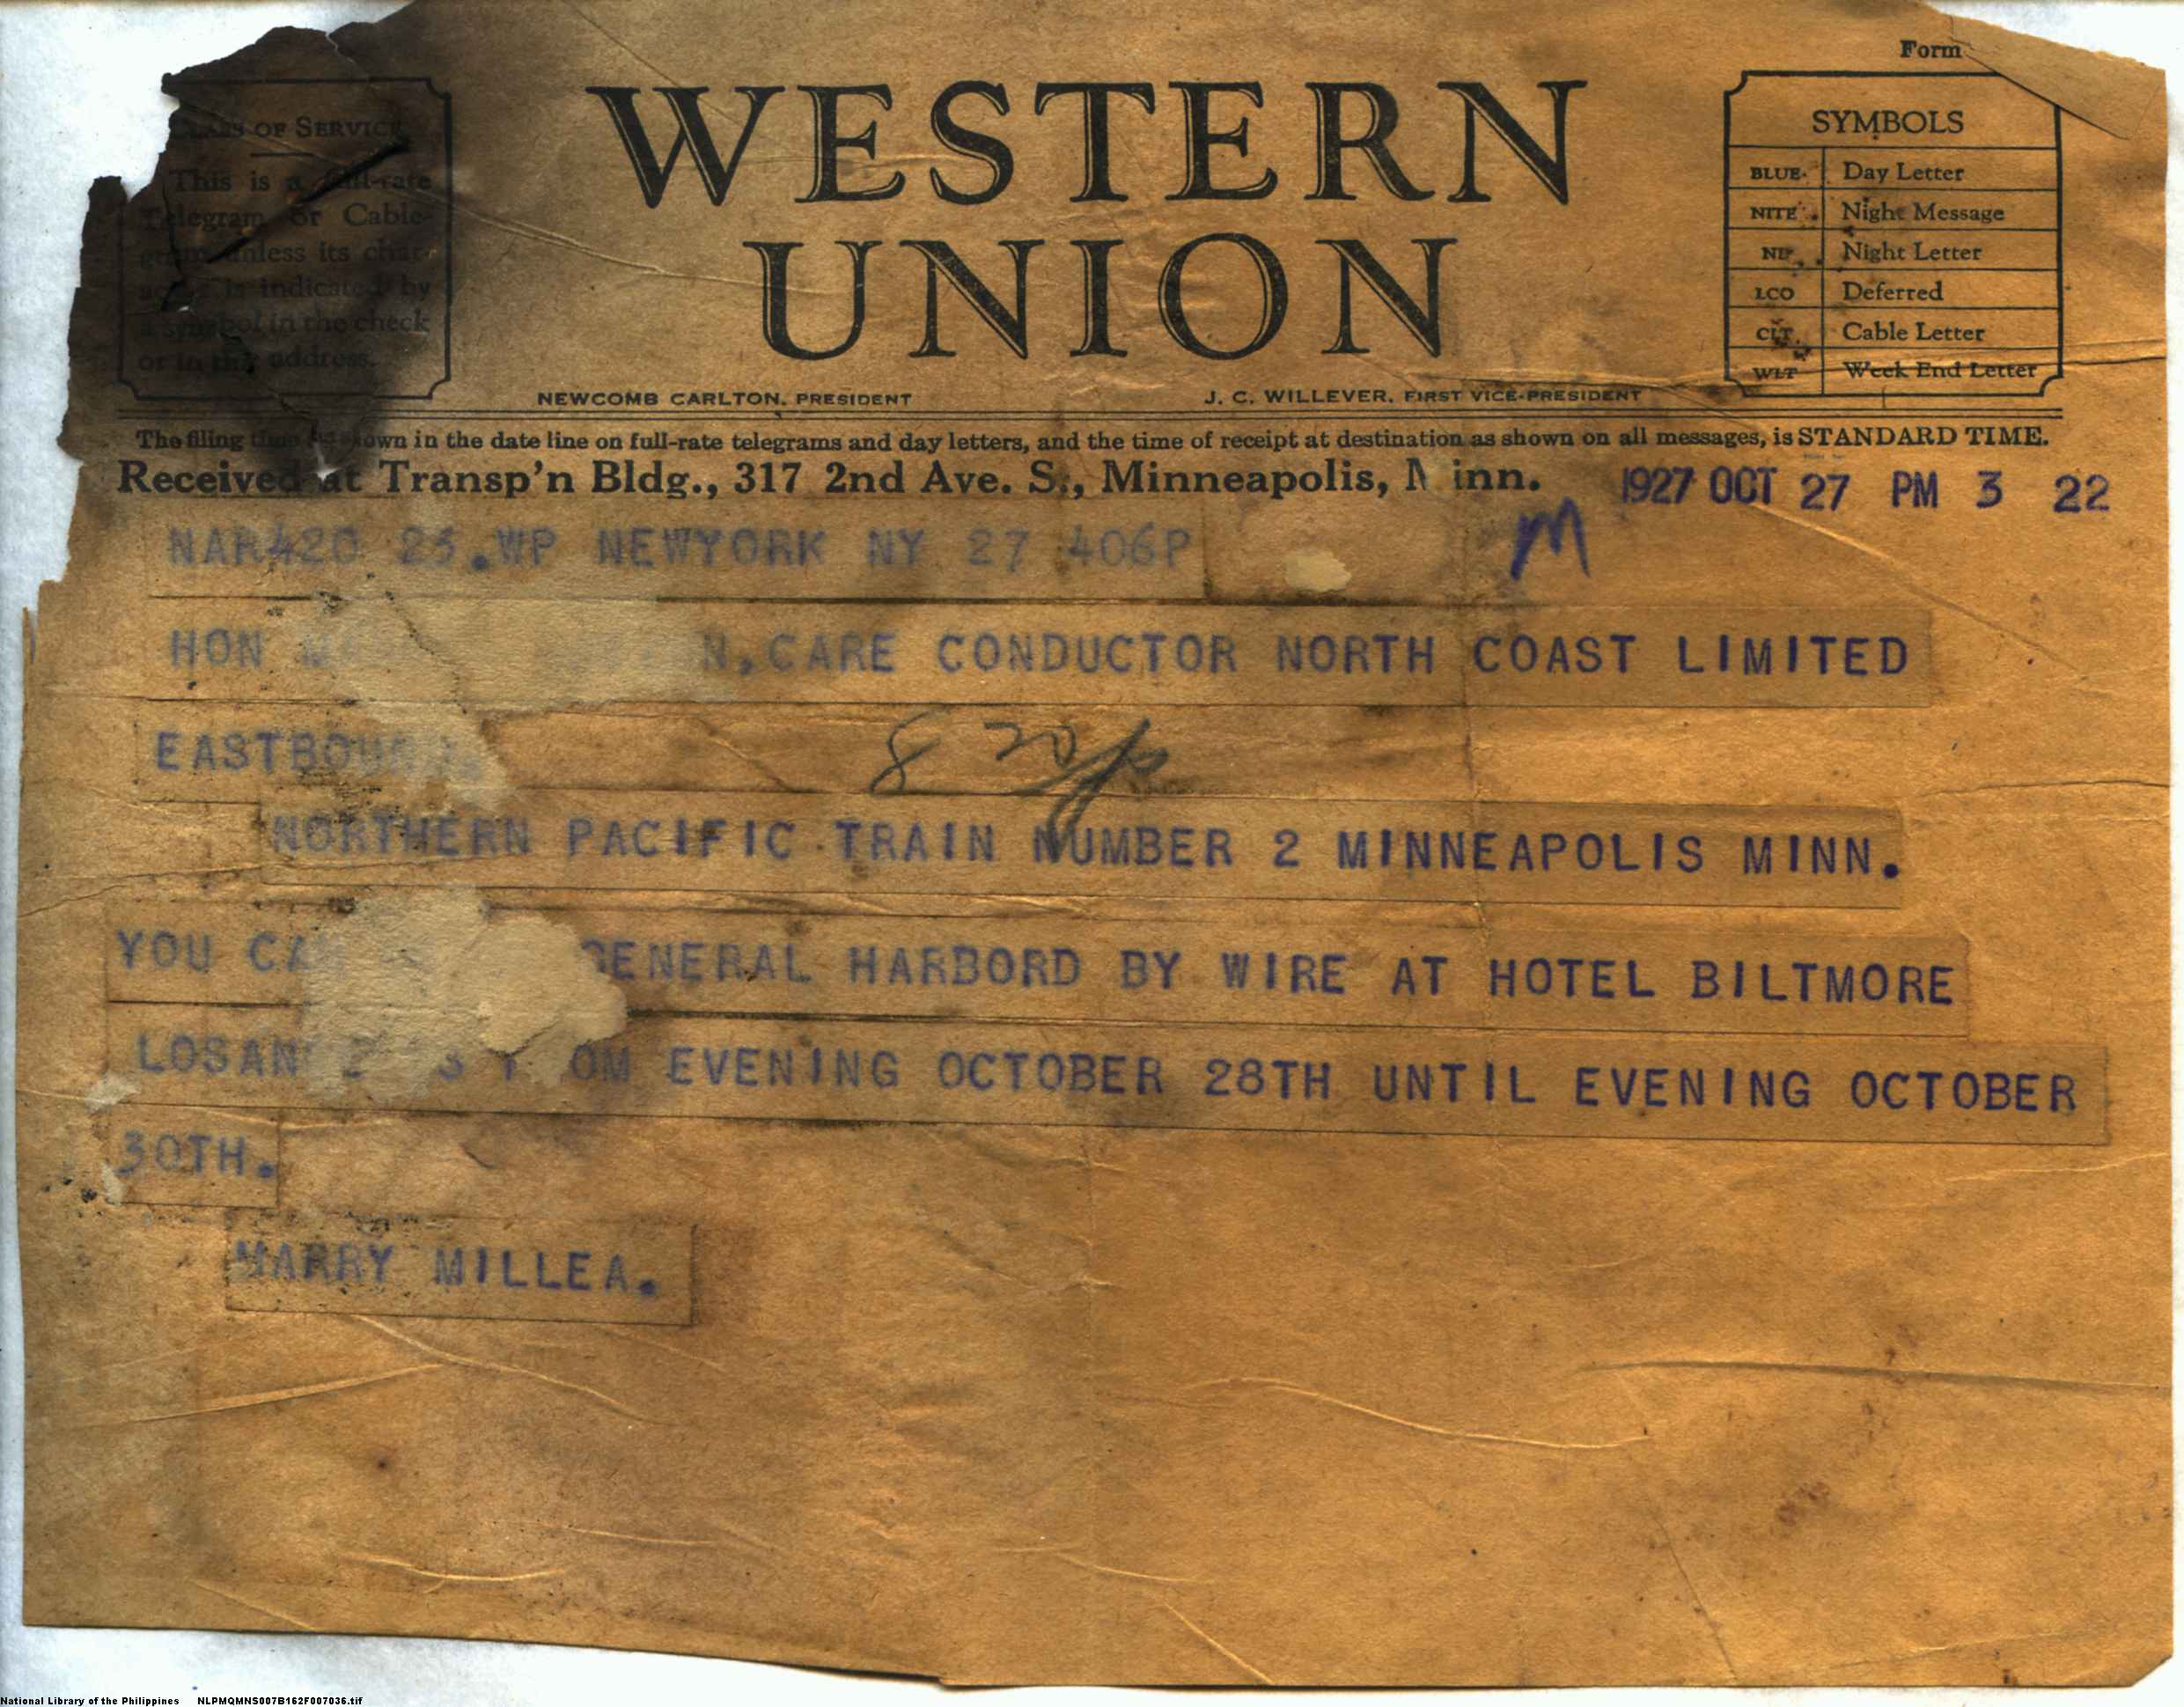 Form
WESTERN
UNION
CLASS OF SERVICE
This is a full-rate
Telegram or Cable-
gram unless its char-
acter is indicated by
a symbol in the check
or in the address.
SYMBOLS
BLUE Day Letter
NITE Night Message
NL Night Letter
LCO Deferred
CLT Cable Letter
WLT Week End Letter
NEWCOMB CARLTON, PRESIDENT J. C. WILLEVER, FIRST VICE-PRESIDENT
The filing time as shown in the date line on full-rate telegrams and day letters, and the time of receipt at destination as shown on all messages, is STANDARD TIME.
Received at Transp'n Bldg., 317 2nd Ave. S., Minneapolis, Minn. 1927 OCT 27 PM 3 22
NAR420 25.WP NEWYORK NY 27 406P M
HON CARE CONDUCTOR NORTH COAST LIMITED
EASTBOUND.
8 20p
NORTHERN PACIFIC TRAIN NUMBER 2 MINNEAPOLIS MINN.
YOU GENERAL HARBORD BY WIRE AT HOTEL BILTMORE
FROM EVENING OCTOBER 28TH UNTIL EVENING OCTOBER
30TH.
HARRY MILLEA.
National Library of the Philippines NLPMQMNS007B162F007036.tif